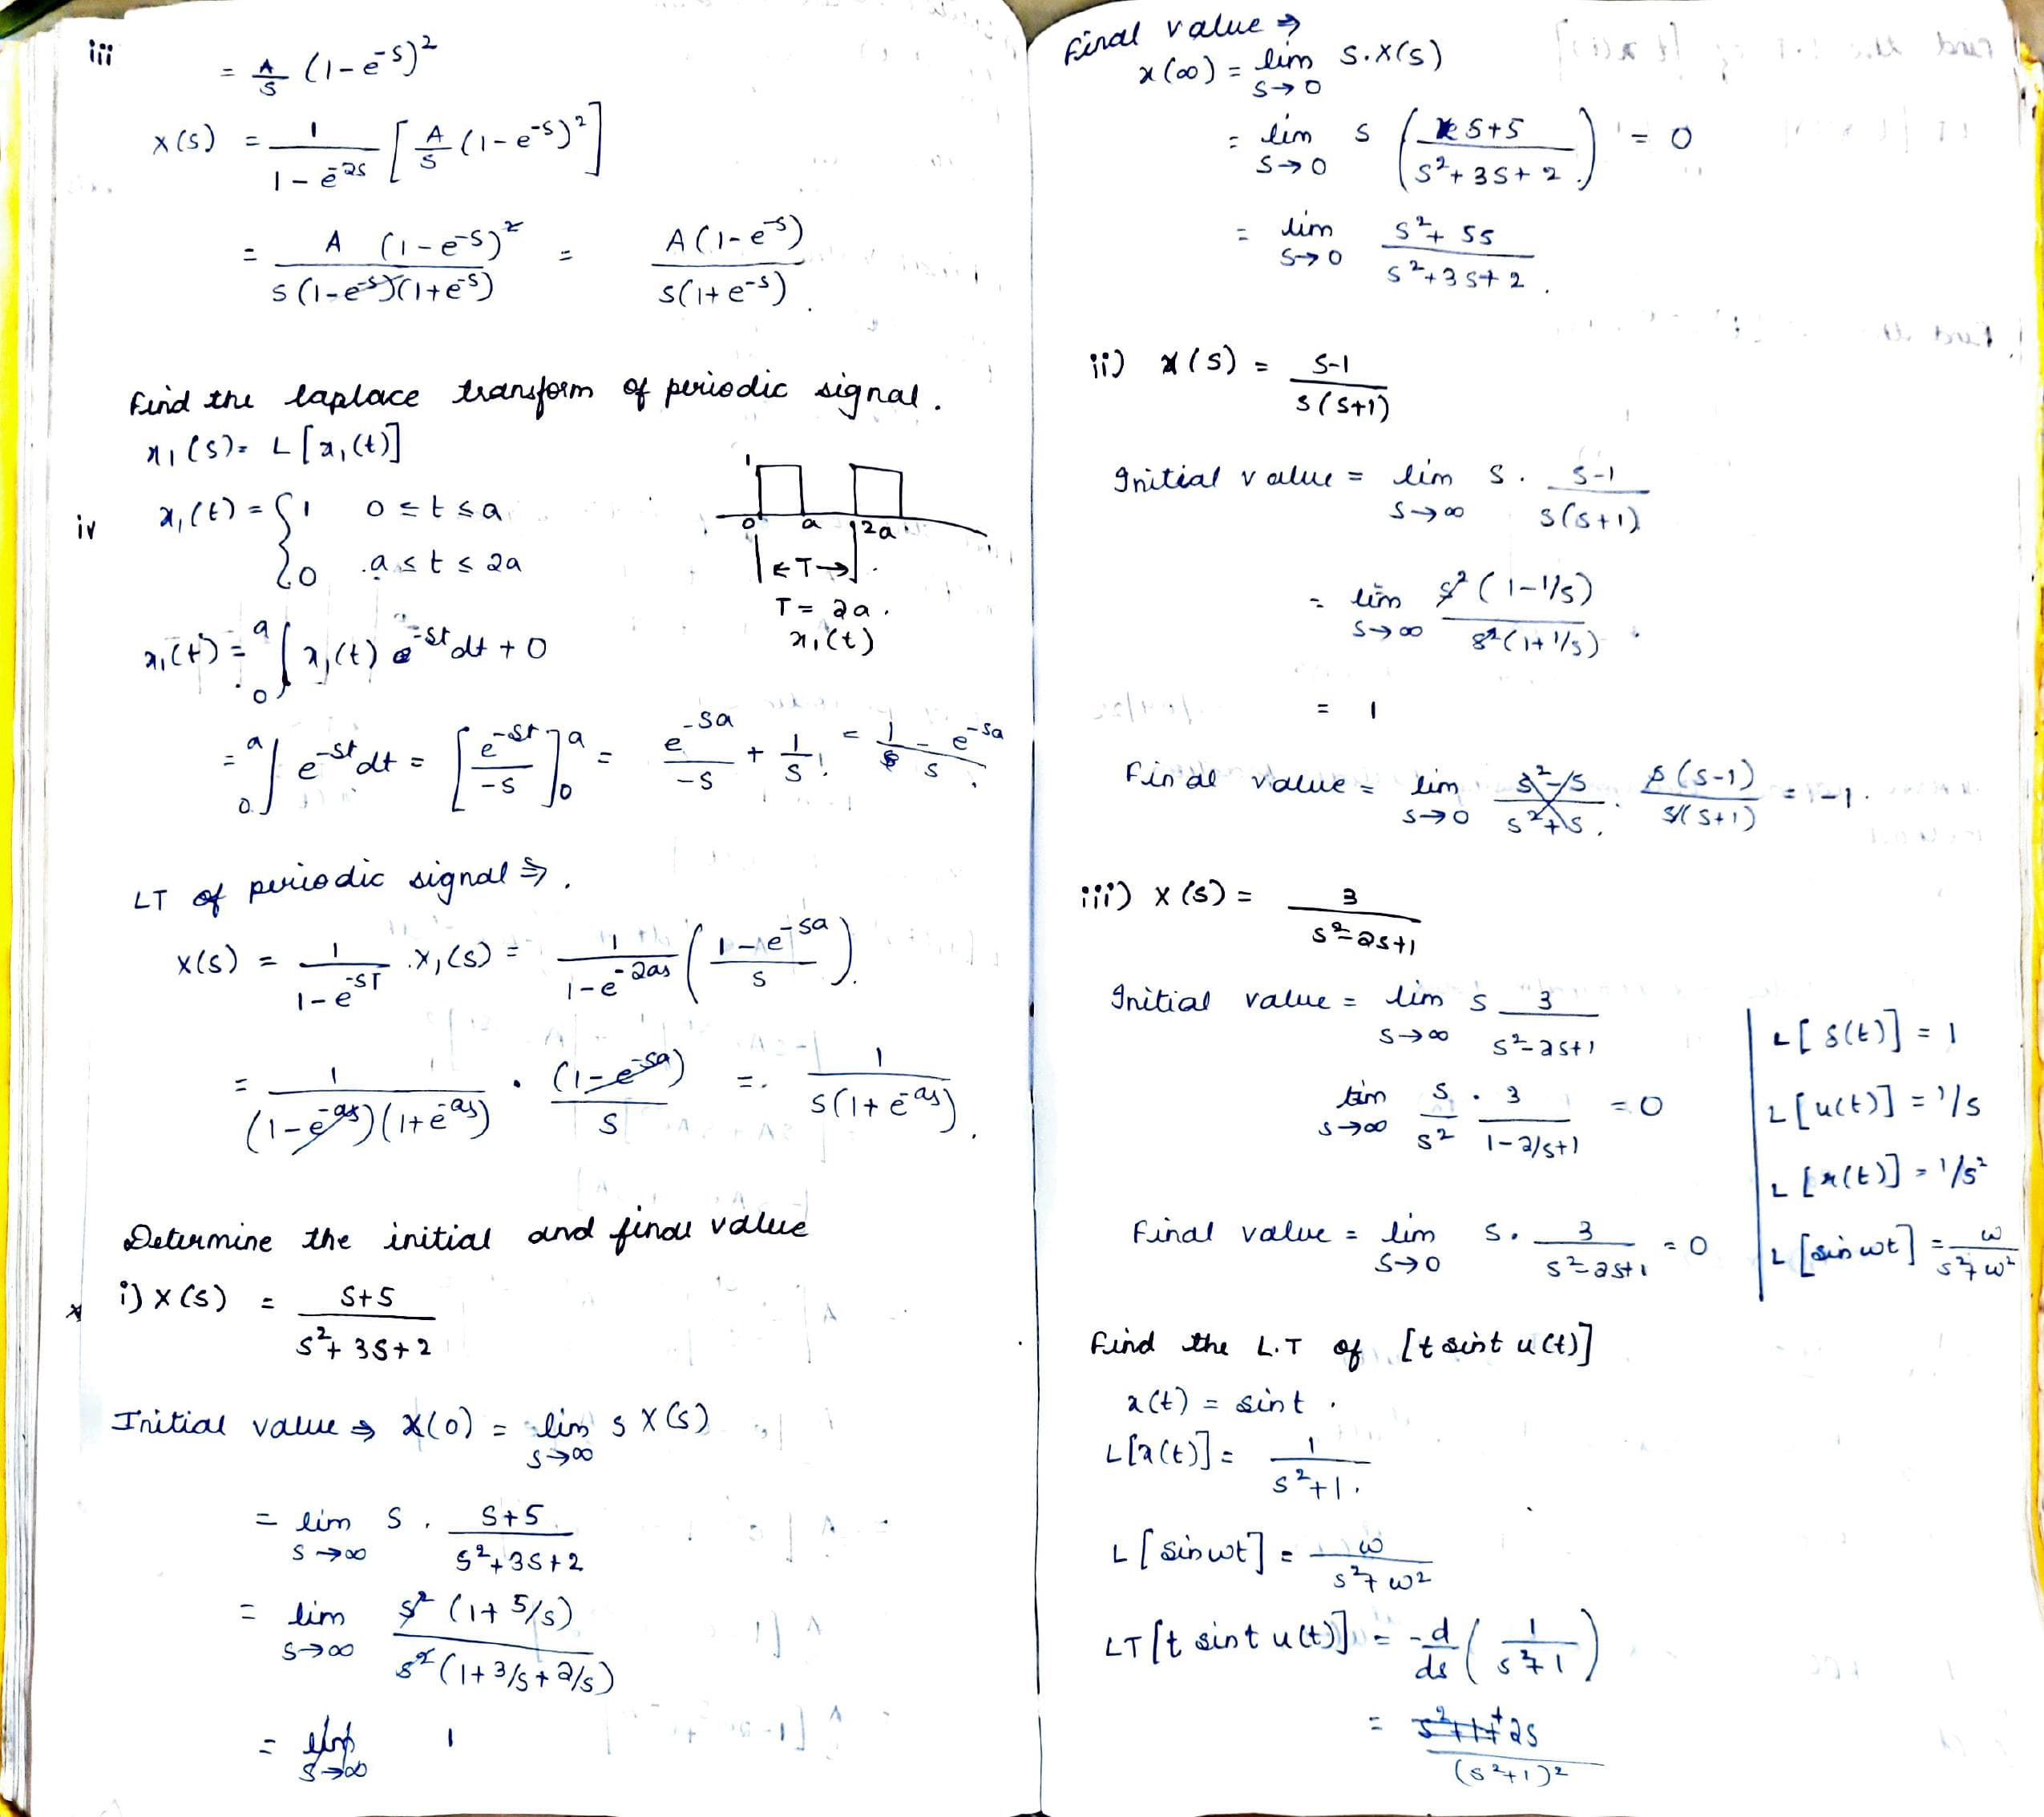 iii
= A/s (1-e^-s)^2
X(s) = 1/(1-e^-2s) [A/s (1-e^-s)^2]
= A (1-e^-s)^2 / s(1-e^-s)(1+e^-s) = A(1-e^-s) / s(1+e^-s).
Find the laplace transform of periodic signal.
x1(s) = L[x1(t)]
iv x1(t) = { 1 0 ≤ t ≤ a
0 a ≤ t ≤ 2a
1
0 a 2a
←T→
T = 2a.
x1(t)
x1(t) = 0∫a x1(t) e^-st dt + 0
= 0∫a e^-st dt = [e^-st / -s]0^a = e^-sa / -s + 1/s = 1/s - e^-sa / s.
LT of periodic signal ⇒.
X(s) = 1/(1-e^-sT) . X1(s) = 1/(1-e^-2as) ((1-e^-sa)/s).
= 1/((1-e^-as)(1+e^-as)) . (1-e^-sa)/s = 1/(s(1+e^-as)).
Determine the initial and final value
i) X(s) = s+5 / s^2+3s+2
Initial value ⇒ x(0) = lim s→∞ s X(s)
= lim s→∞ s . s+5 / s^2+3s+2
= lim s→∞ s^2 (1+5/s) / s^2 (1+3/s+2/s)
= 1
Final value ⇒
x(∞) = lim s→0 s.X(s)
= lim s→0 s (s+5 / s^2+3s+2) = 0
= lim s→0 s^2+5s / s^2+3s+2.
ii) X(s) = s-1 / s(s+1)
Initial value = lim s→∞ s . s-1 / s(s+1)
= lim s→∞ s^2 (1-1/s) / s^2 (1+1/s).
= 1
Final value = lim s→0 s^2-s / s^2+s . s(s-1) / s(s+1) = -1.
iii) X(s) = 3 / s^2-2s+1
Initial value = lim s→∞ s 3 / s^2-2s+1
lim s→∞ s/s^2 . 3 / 1-2/s+1 = 0
Final value = lim s→0 s. 3 / s^2-2s+1 = 0
L[δ(t)] = 1
L[u(t)] = 1/s
L[r(t)] = 1/s^2
L[sin ωt] = ω / s^2+ω^2
Find the L.T of [t sint u(t)]
x(t) = sint.
L[x(t)] = 1 / s^2+1.
L[sin ωt] = ω / s^2+ω^2
LT[t sint u(t)] = -d/ds (1 / s^2+1)
= 2s / (s^2+1)^2